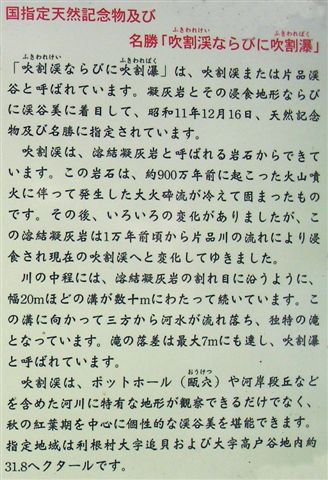 国指定天然記念物及び
ふきわれけい ふきわればく
名勝「吹割渓ならびに吹割瀑」
ふきわれけい ふきわればく
「吹割渓ならびに吹割瀑」は、吹割渓または片品渓
谷と呼ばれています。凝灰岩とその浸食地形ならび
に渓谷美に着目して、昭和11年12月16日、天然記念
物及び名勝に指定されています。
吹割渓は、溶結凝灰岩と呼ばれる岩石からできて
います。この岩石は、約900万年前に起こった火山噴
火に伴って発生した大火砕流が冷えて固まったもの
です。その後、いろいろの変化がありましたが、こ
の溶結凝灰岩は1万年前頃から片品川の流れにより浸
食され現在の吹割渓へと変化してゆきました。
川の中程には、溶結凝灰岩の割れ目に沿うように、
幅20mほどの溝が数十mにわたって続いています。こ
の溝に向かって三方から河水が流れ落ち、独特の滝
となっています。滝の落差は最大7mにも達し、吹割瀑
と呼ばれています。
おうけつ
吹割渓は、ポットホール（甌穴）や河岸段丘など
を含めた河川に特有な地形が観察できるだけでなく、
秋の紅葉期を中心に個性的な渓谷美を堪能できます。
指定地域は利根村大字追貝および大字高戸谷地内約
31.8ヘクタールです。